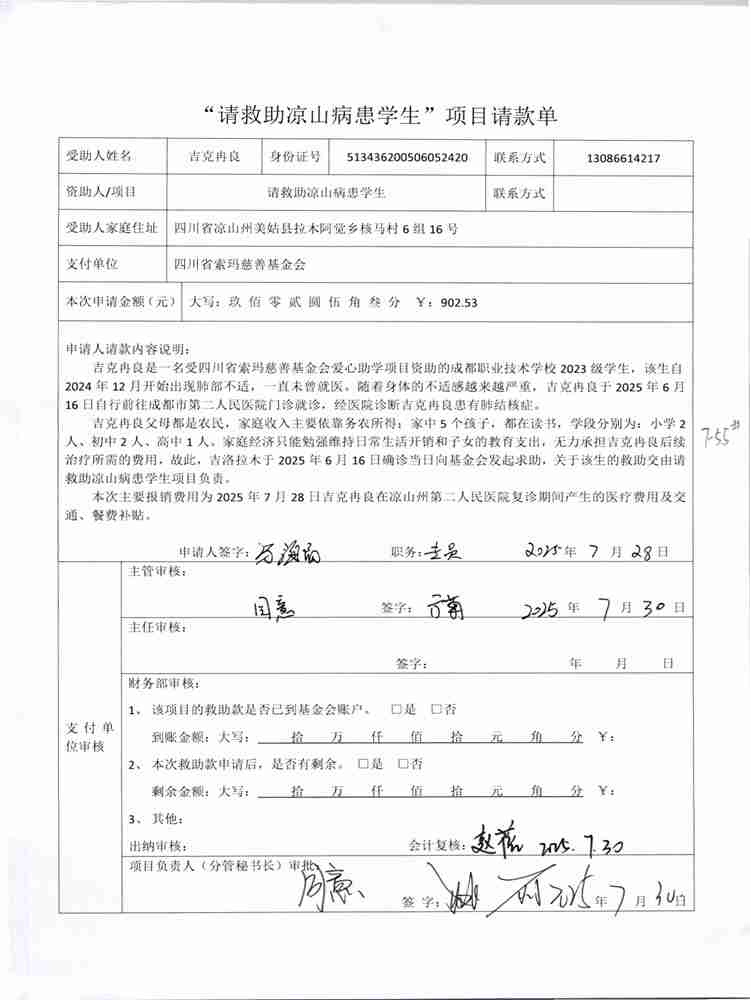 “请救助凉山病患学生”项目请款单
受助人姓名 吉克冉良 身份证号 513436200506052420 联系方式 13086614217
资助人/项目 请救助凉山病患学生 联系方式
受助人家庭住址 四川省凉山州美姑县拉木阿觉乡核马村 6 组 16 号
支付单位 四川省索玛慈善基金会
本次申请金额（元） 大写：玖 佰 零 贰 圆 伍 角 叁 分 ￥：902.53
申请人请款内容说明：
吉克冉良是一名受四川省索玛慈善基金会爱心助学项目资助的成都职业技术学校 2023 级学生，该生自
2024 年 12 月开始出现肺部不适，一直未曾就医。随着身体的不适感越来越严重，吉克冉良于 2025 年 6 月
16 日自行前往成都市第二人民医院门诊就诊，经医院诊断吉克冉良患有肺结核症。
吉克冉良父母都是农民，家庭收入主要依靠务农所得；家中 5 个孩子，都在读书，学段分别为：小学 2
人、初中 2 人、高中 1 人。家庭经济只能勉强维持日常生活开销和子女的教育支出，无力承担吉克冉良后续
治疗所需的费用，故此，吉洛拉木于 2025 年 6 月 16 日确诊当日向基金会发起求助，关于该生的救助交由请
救助凉山病患学生项目负责。
本次主要报销费用为 2025 年 7 月 28 日吉克冉良在凉山州第二人民医院复诊期间产生的医疗费用及交
通、餐费补贴。
7-55
申请人签字： 职务： 2025 年 7 月 28 日
支 付 单
位审核
主管审核：
同意 签字： 2025 年 7 月 30 日
主任审核：
签字： 年 月 日
财务部审核：
1、 该项目的救助款是否已到基金会账户。 □是 □否
到账金额：大写： 拾 万 仟 佰 拾 元 角 分 ￥：
2、 本次救助款申请后，是否有剩余。 □是 □否
剩余金额：大写： 拾 万 仟 佰 拾 元 角 分 ￥：
3、 其他：
出纳审核： 会计复核： 2025.7.30
项目负责人（分管秘书长）审批：
同意 签 字： 2025 年 7 月 30 日